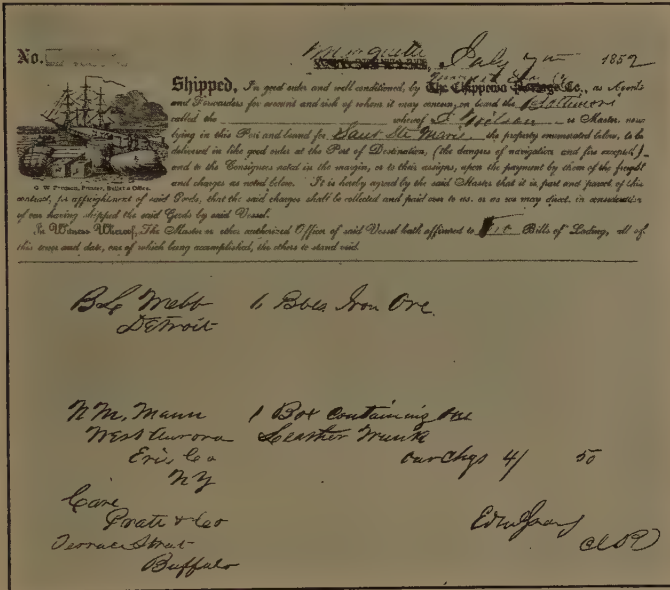 No.
Marquette, July 7th 1852
Shipped, In good order and well conditioned, by The Chippewa Portage Co., as Agents
and Forwarders for account and risk of whom it may concern, on board the Baltimore
called the whereof J. Wilson is Master, now
lying in this Port and bound for Saut Ste Marie the property enumerated below, to be
delivered in like good order at the Port of Destination, (the dangers of navigation and fire excepted)
and to the Consignees noted in the margin, or to their assigns, upon the payment by them of the freight
and charges as noted below. It is hereby agreed by the said Master that it is part and parcel of this
contract, for affreightment of said Goods, that the said charges shall be collected and paid over to us, or as we may direct, in consideration
of our having shipped the said Goods by said Vessel.
In Witness Whereof, The Master or other authorized Officer of said Vessel hath affirmed to Bills of Lading, all of
this tenor and date, one of which being accomplished, the others to stand void.
Webb 6 Bbls Iron Ore.
Detroit
N M, Mann 1 Box containing one
West Aurora Leather Trunk
Erie, Co our Chgs 4/ 50
NY
Care
Pratt & Co
Terrace Street
Buffalo